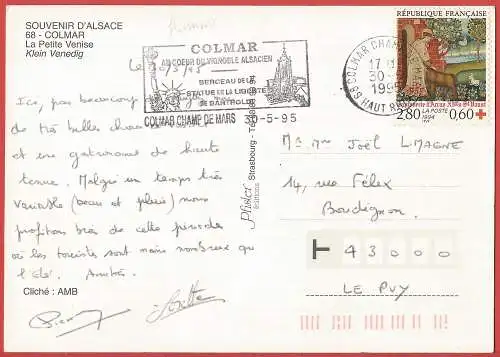 SOUVENIR D'ALSACE
68 - COLMAR
La Petite Venise
Klein Venedig
COLMAR
AU COEUR DU VIGNOBLE ALSACIEN
BERCEAU DE LA
STATUE DE LA LIBERTE
DE BARTHOLDI
COLMAR CHAMP DE MARS 30-5-95
68 COLMAR CHAMP
17 H
30 -
1995
HAUT R
RÉPUBLIQUE FRANÇAISE
LA POSTE
1994
2,80 0,60
30/5/95
Ici, pas beaucoup de
de très belles
et une gastronomie de haute
tenue. Malgré un temps très
variable (beau et pluie) nous
profitons bien de cette période
où les touristes sont moins nombreux que
l'été. Amitiés.
Cliché : AMB
Pfister
éditions
Strasbourg - Tél.
Mr Mme Joël LMAGNE
14, rue Félix
Boudignon.
43000
LE PUY